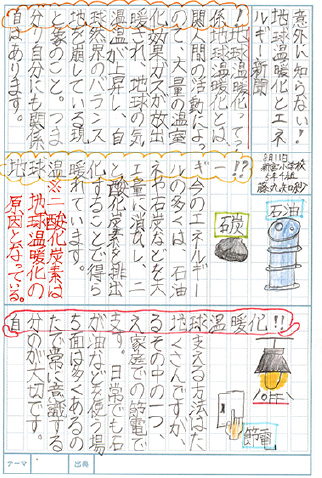 意外に知らない!!
地球温暖化とエネ
ルギー新聞
8月11日
5年1組
自分と地球温暖化の関係!?
地球温暖化とは、
人間の活動によっ
て、大量の温室
効果ガスが放出
され、地球の気
温が上昇し、自
然界のバランス
を崩している現
象のこと。つま
り自分にも関係
はあります。
石油
石炭
今のエネルギー
の多くは、石油
や石炭などを大
量に消費し、二
酸化炭素を排出
することで得ら
れています。
※二酸化炭素は
地球温暖化の
原因となっている。
地球温暖化!!
える方法はた
くさんですが、
その中の一つ、
家庭での節電で
す。日常でも石
油などを使う場
面は多くあるの
で常に意識する
のが大切です。
節電
テーマ
出典